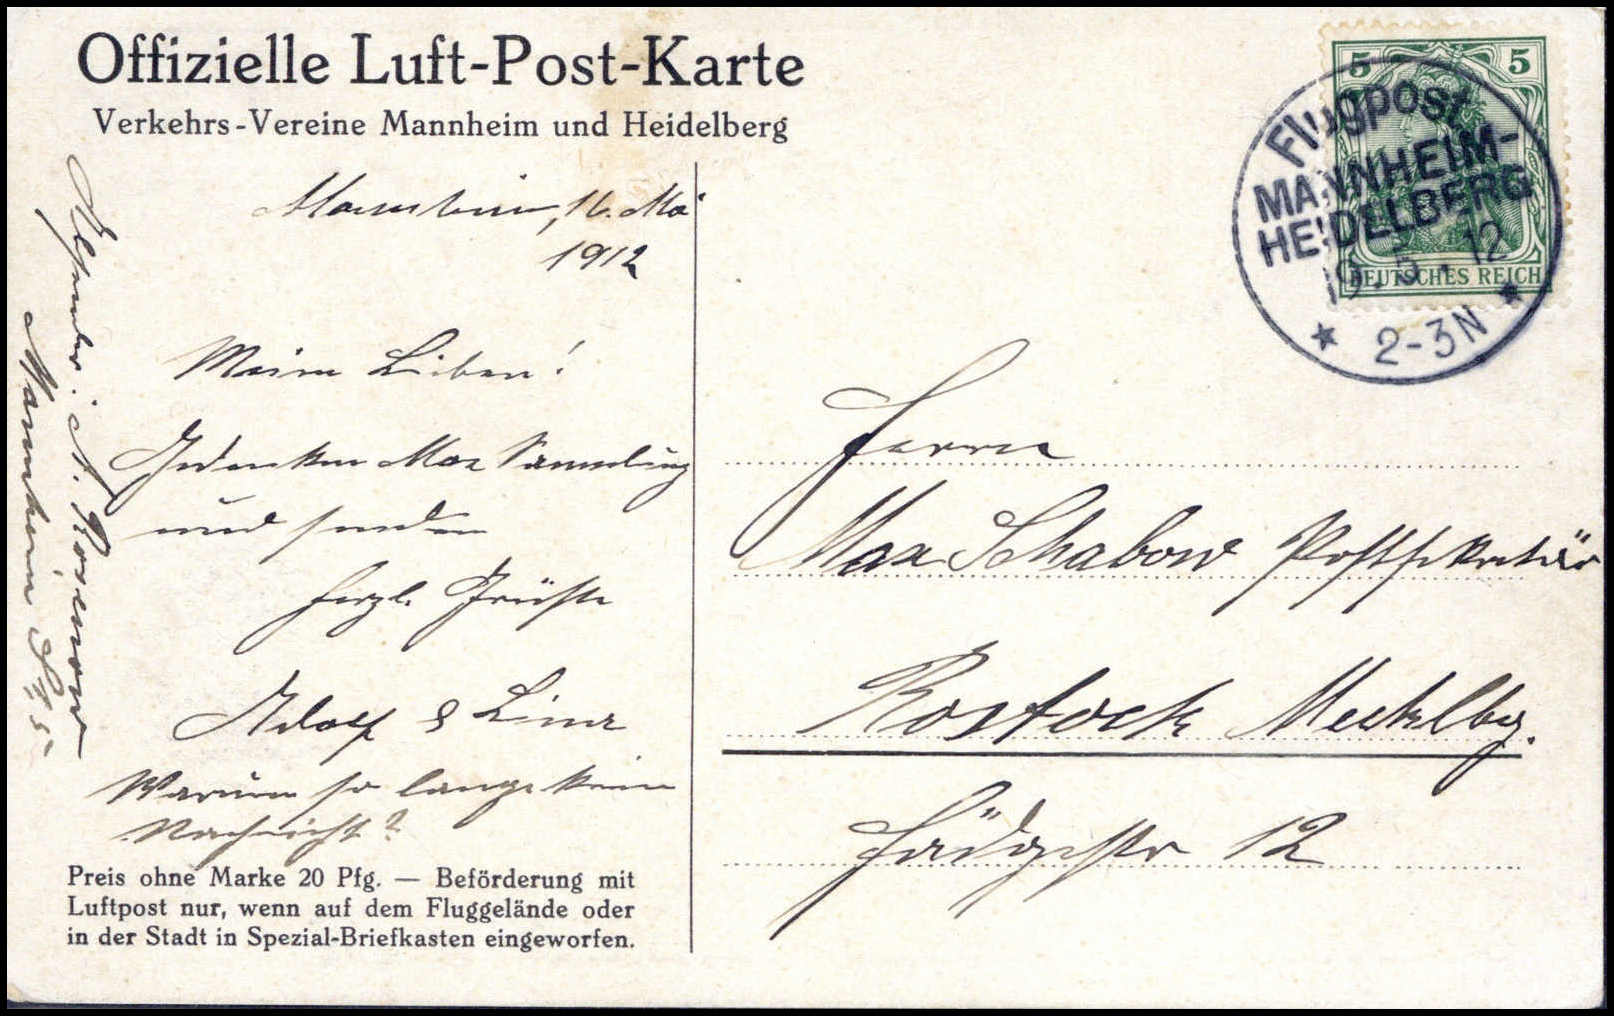 Offizielle Luft-Post-Karte
Verkehrs-Vereine Mannheim und Heidelberg
5 5
DEUTSCHES REICH
Flugpost
MANNHEIM-
HEIDELBERG
19.5.12
2-3N
Mannheim, 16. Mai
1912
Meine Lieben!
Gedenken Max Sammlung
und senden
herzl. Grüße
Adolf & Lina
Warum so lange keine
Nachricht?
Absender: A. Rosenow
Mannheim
Herrn
Max Schabow Postsekretär
Rostock Mecklbg.
12
Preis ohne Marke 20 Pfg. — Beförderung mit
Luftpost nur, wenn auf dem Fluggelände oder
in der Stadt in Spezial-Briefkasten eingeworfen.